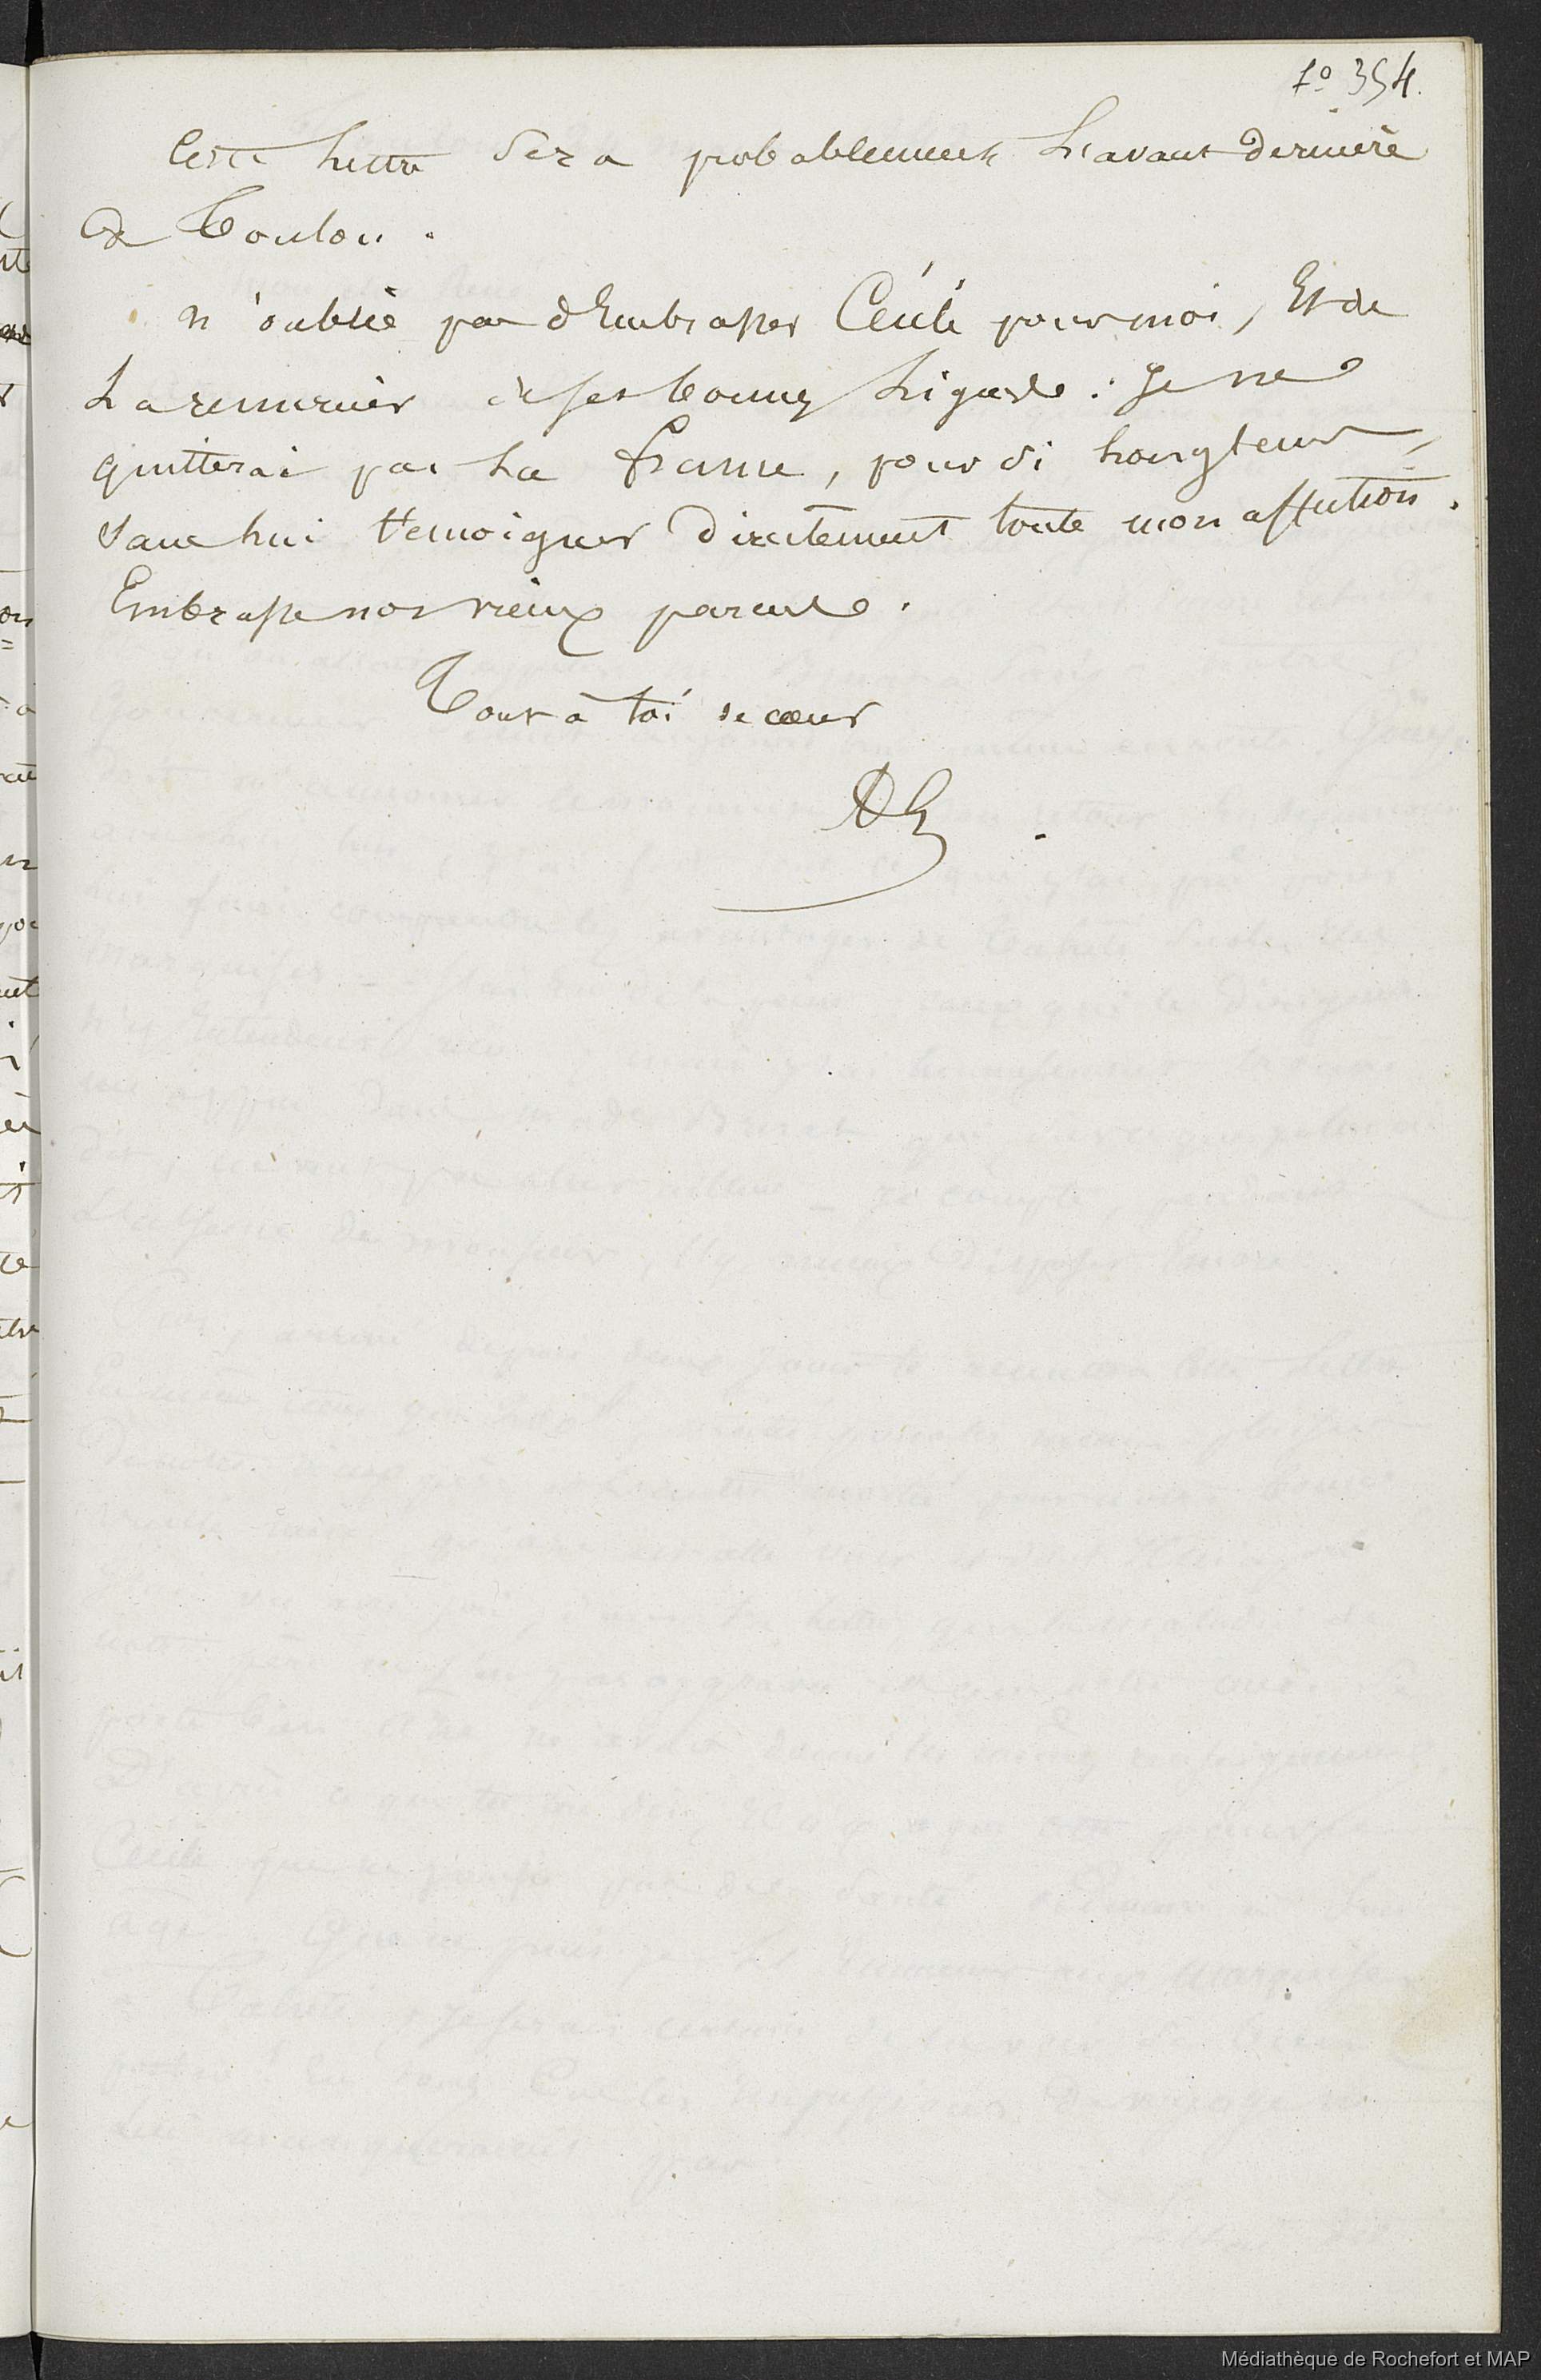 fo 354.
Cette lettre sera probablement l'avant dernière
de Toulon.
N'oublie pas d'Embrasser Cécile pour moi, Et de
la remercier de ses bonnes lignes : Je ne
quitterai pas la france, pour si longtems,
sans lui témoigner directement toute mon affection.
Embrasse nos vieux parents.
Tout à toi de cœur
Médiathèque de Rochefort et MAP